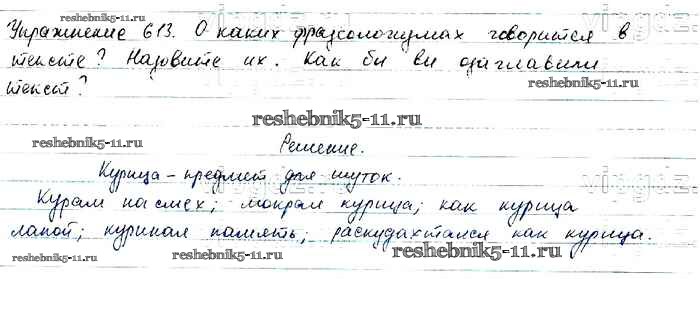 reshebnik5-11.ru
Упражнение 613. О каких фразеологизмах говорится в
тексте? Назовите их. Как бы вы озаглавили
текст?
reshebnik5-11.ru
reshebnik5-11.ru
Решение.
Курица – предмет для шуток.
Курам на смех; мокрая курица; как курица
лапой; куриная память; раскудахтался как курица.
reshebnik5-11.ru
reshebnik5-11.ru